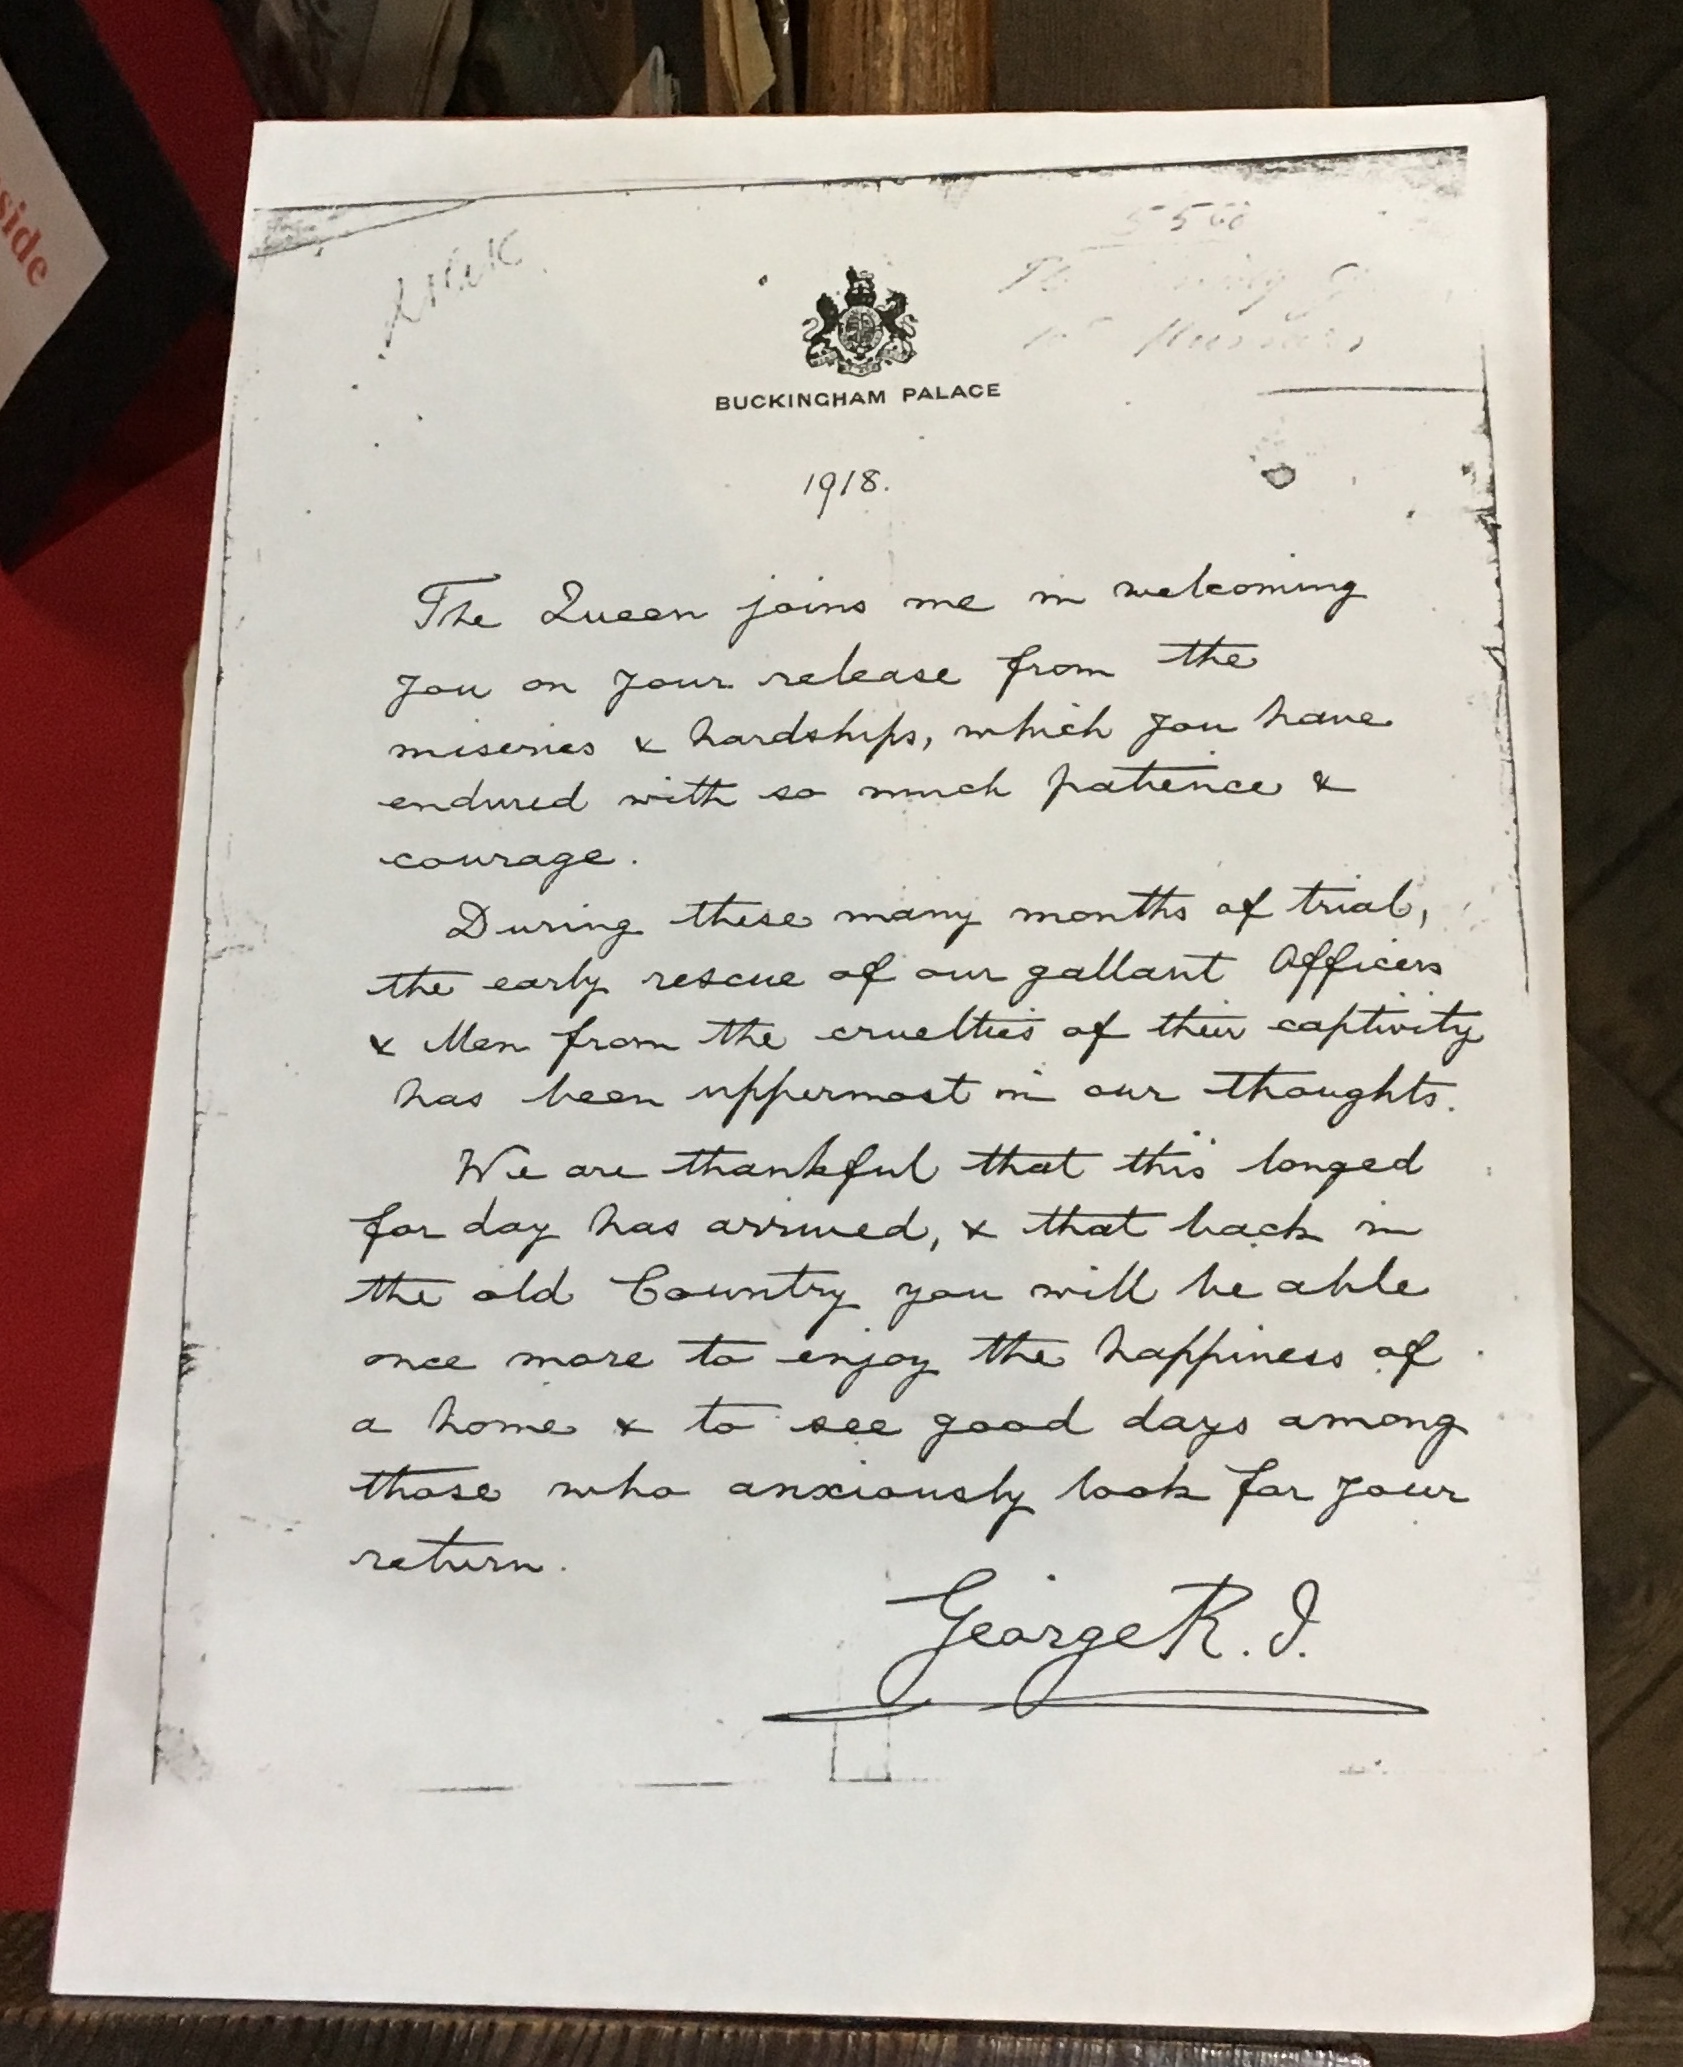 side
5560
BUCKINGHAM PALACE
1918.
The Queen joins me in welcoming
you on your release from the
miseries & hardships, which you have
endured with so much patience &
courage.
During these many months of trial,
the early rescue of our gallant Officers
& Men from the cruelties of their captivity
has been uppermost in our thoughts.
We are thankful that this longed
for day has arrived, & that back in
the old Country you will be able
once more to enjoy the happiness of
a home & to see good days among
those who anxiously look for your
return.
George R.I.